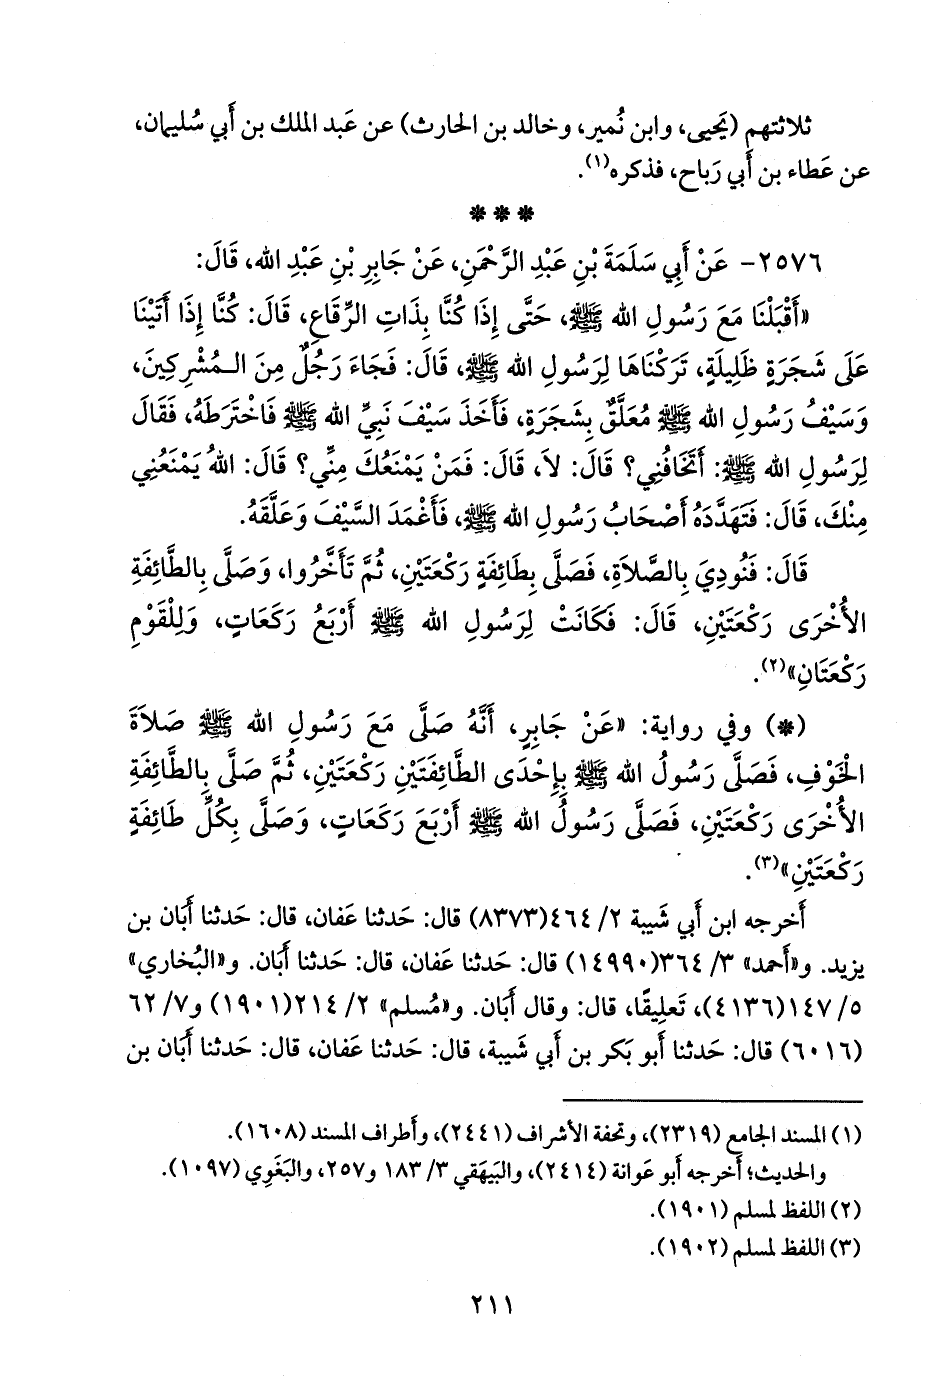 ثلاثتهم (يَحيى، وابن نُمير، وخالد بن الحارث) عن عَبد الملك بن أَبي سُليمان،
عن عَطاء بن أَبي رَباح، فذكره(١).
* * *
٢٥٧٦- عَنْ أَبِي سَلَمَةَ بْنِ عَبْدِ الرَّحْمَنِ، عَنْ جَابِرِ بْنِ عَبْدِ الله، قَالَ:
«أَقْبَلْنَا مَعَ رَسُولِ الله ﷺ، حَتَّى إِذَا كُنَّا بِذَاتِ الرِّقَاعِ، قَالَ: كُنَّا إِذَا أَتَيْنَا
عَلَى شَجَرَةٍ ظَلِيلَةٍ، تَرَكْنَاهَا لِرَسُولِ الله ﷺ، قَالَ: فَجَاءَ رَجُلٌ مِنَ الـمُشْرِكِينَ،
وَسَيْفُ رَسُولِ الله ﷺ مُعَلَّقٌ بِشَجَرَةٍ، فَأَخَذَ سَيْفَ نَبِيِّ الله ﷺ فَاخْتَرَطَهُ، فَقَالَ
لِرَسُولِ الله ﷺ: أَتَخَافُنِي؟ قَالَ: لاَ، قَالَ: فَمَنْ يَمْنَعُكَ مِنِّي؟ قَالَ: اللهُ يَمْنَعُنِي
مِنْكَ، قَالَ: فَتَهَدَّدَهُ أَصْحَابُ رَسُولِ الله ﷺ، فَأَغْمَدَ السَّيْفَ وَعَلَّقَهُ.
قَالَ: فَنُودِيَ بِالصَّلاَةِ، فَصَلَّى بِطَائِفَةٍ رَكْعَتَيْنِ، ثُمَّ تَأَخَّرُوا، وَصَلَّى بِالطَّائِفَةِ
الأُخْرَى رَكْعَتَيْنِ، قَالَ: فَكَانَتْ لِرَسُولِ الله ﷺ أَرْبَعُ رَكَعَاتٍ، وَلِلْقَوْمِ
رَكْعَتَانِ»(٢).
(*) وفي رواية: «عَنْ جَابِرٍ، أَنَّهُ صَلَّى مَعَ رَسُولِ الله ﷺ صَلاَةَ
الْخَوْفِ، فَصَلَّى رَسُولُ الله ﷺ بِإِحْدَى الطَّائِفَتَيْنِ رَكْعَتَيْنِ، ثُمَّ صَلَّى بِالطَّائِفَةِ
الأُخْرَى رَكْعَتَيْنِ، فَصَلَّى رَسُولُ الله ﷺ أَرْبَعَ رَكَعَاتٍ، وَصَلَّى بِكُلِّ طَائِفَةٍ
رَكْعَتَيْنِ»(٣).
أَخرجه ابن أَبي شَيبة ٢/ ٤٦٤(٨٣٧٣) قال: حَدثنا عَفان، قال: حَدثنا أَبَان بن
يزيد. و«أَحمد» ٣/ ٣٦٤(١٤٩٩٠) قال: حَدثنا عَفان، قال: حَدثنا أَبَان. و«البُخاري»
٥/ ١٤٧(٤١٣٦)، تَعليقًا، قال: وقال أَبَان. و«مُسلم» ٢/ ٢١٤(١٩٠١) و٧/ ٦٢
(٦٠١٦) قال: حَدثنا أَبو بَكر بن أَبي شَيبة، قال: حَدثنا عَفان، قال: حَدثنا أَبَان بن
(١) المسند الجامع (٢٣١٩)، وتحفة الأشراف (٢٤٤١)، وأَطراف المسند (١٦٠٨).
والحديث؛ أَخرجه أَبو عَوانة (٢٤١٤)، والبَيهَقي ٣/ ١٨٣ و٢٥٧، والبَغَوِي (١٠٩٧).
(٢) اللفظ لمسلم (١٩٠١).
(٣) اللفظ لمسلم (١٩٠٢).
٢١١